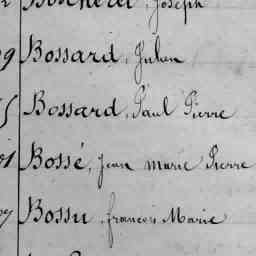 Joseph
9 Bossard, Julien
5 Bossard, Paul Pierre
01 Bossé, Jean Marie Pierre
Bossu, Francois Marie